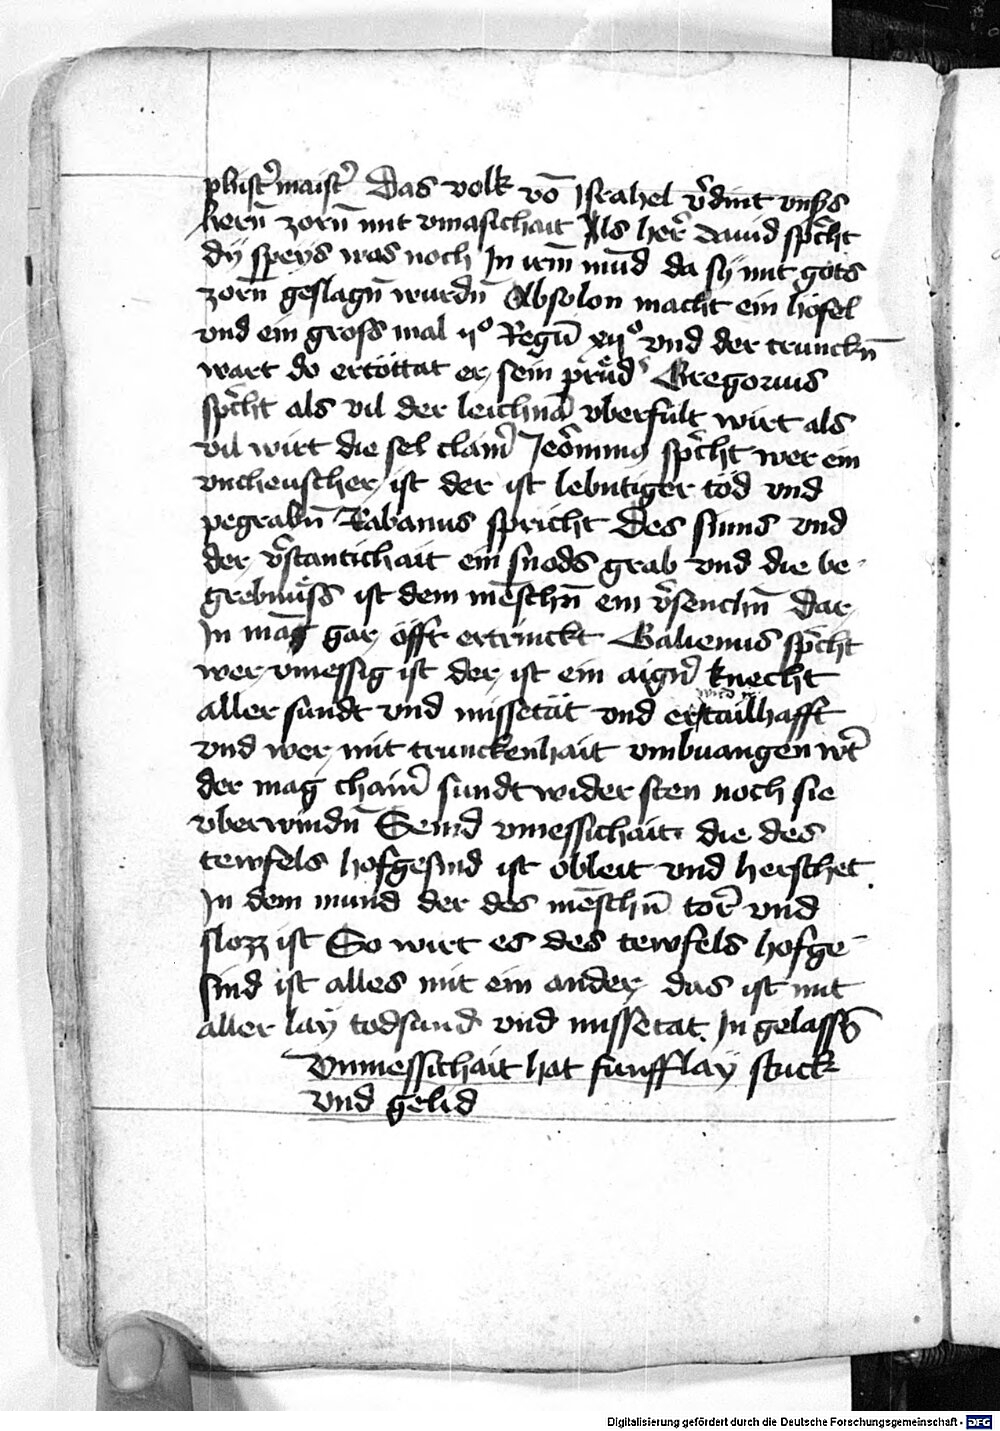 phist᷑ maist᷑ Das volk vō Jsrahel v᷑dint vnsß
hern̄ zorn̄ mit vmasichait Als her᷑ dauid sp᷑cht
dÿ speÿs was noch Jn irm̄ mūd da sÿ mit gots
zorn̄ geslagn̄ wurdn̄ Absolon macht ein höfel
vnd ein gross mal ijº Regū xijº vnd der trunckn̄
wart do ertöttat er sein prüd᷑ Gregorius
sp᷑cht als vil der leichnā vberfült wirt als
vil wirt die sel clain᷑ Jeōnimus sp᷑cht wer ein
vncheuscher ist der ist lebntiger töd vnd
pegrabn̄ Rabanus spricht Des sinns vnd
der v᷑stantichait ein snöds grab vnd die be-
grebnüss ist dem mēschn̄ ein v᷑senchn̄ Dar
Jn māg gar offt ertrinckt Galienus sp᷑cht
wer vmessig ist der ist ein aign᷑ knecht
aller sundt vnd missetät vnd er tailhafft
vnd wer mit trunckenhait vmbuangen w᷑t
der mag chain᷑ sundt wider sten noch sie
vberwindn̄ Seind vmessichait die des
tewfels hofgesind ist obleit vnd herschet
Jn dem mund der des mēschn̄ tor᷑ vnd
slozz ist So wirt es des tewfels hofge-
sind ist alles mit ein ander das ist mit
aller laÿ todsund vnd missetat Jn gelassn̄
Vnmessichait hat funfflaÿ stuck
vnd gelid
Digitalisierung gefördert durch die Deutsche Forschungsgemeinschaft - DFG